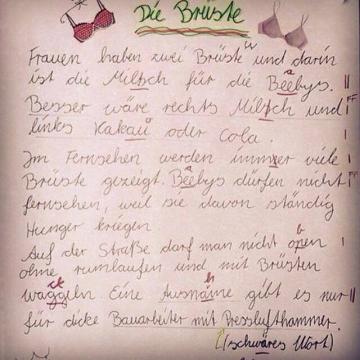 Die Brüste
Frauen haben zwei Brüste und darin
ist die Milsch für die Bèebys.
Besser wäre rechts Milsch und
links Kakauü oder Cola.
Im Fernsehen werden immer viele
Brüste gezeigt. Beebys dürfen nicht
fernsehen, weil sie davon ständig
Hunger kriegen
Auf der Straße darf man nicht open
ohne rumlaufen und mit Brüsten
waggeln. Eine Ausname gibt es nur
für dicke Bauarbeiter mit Presslufthammer.
(schwäres Wort)